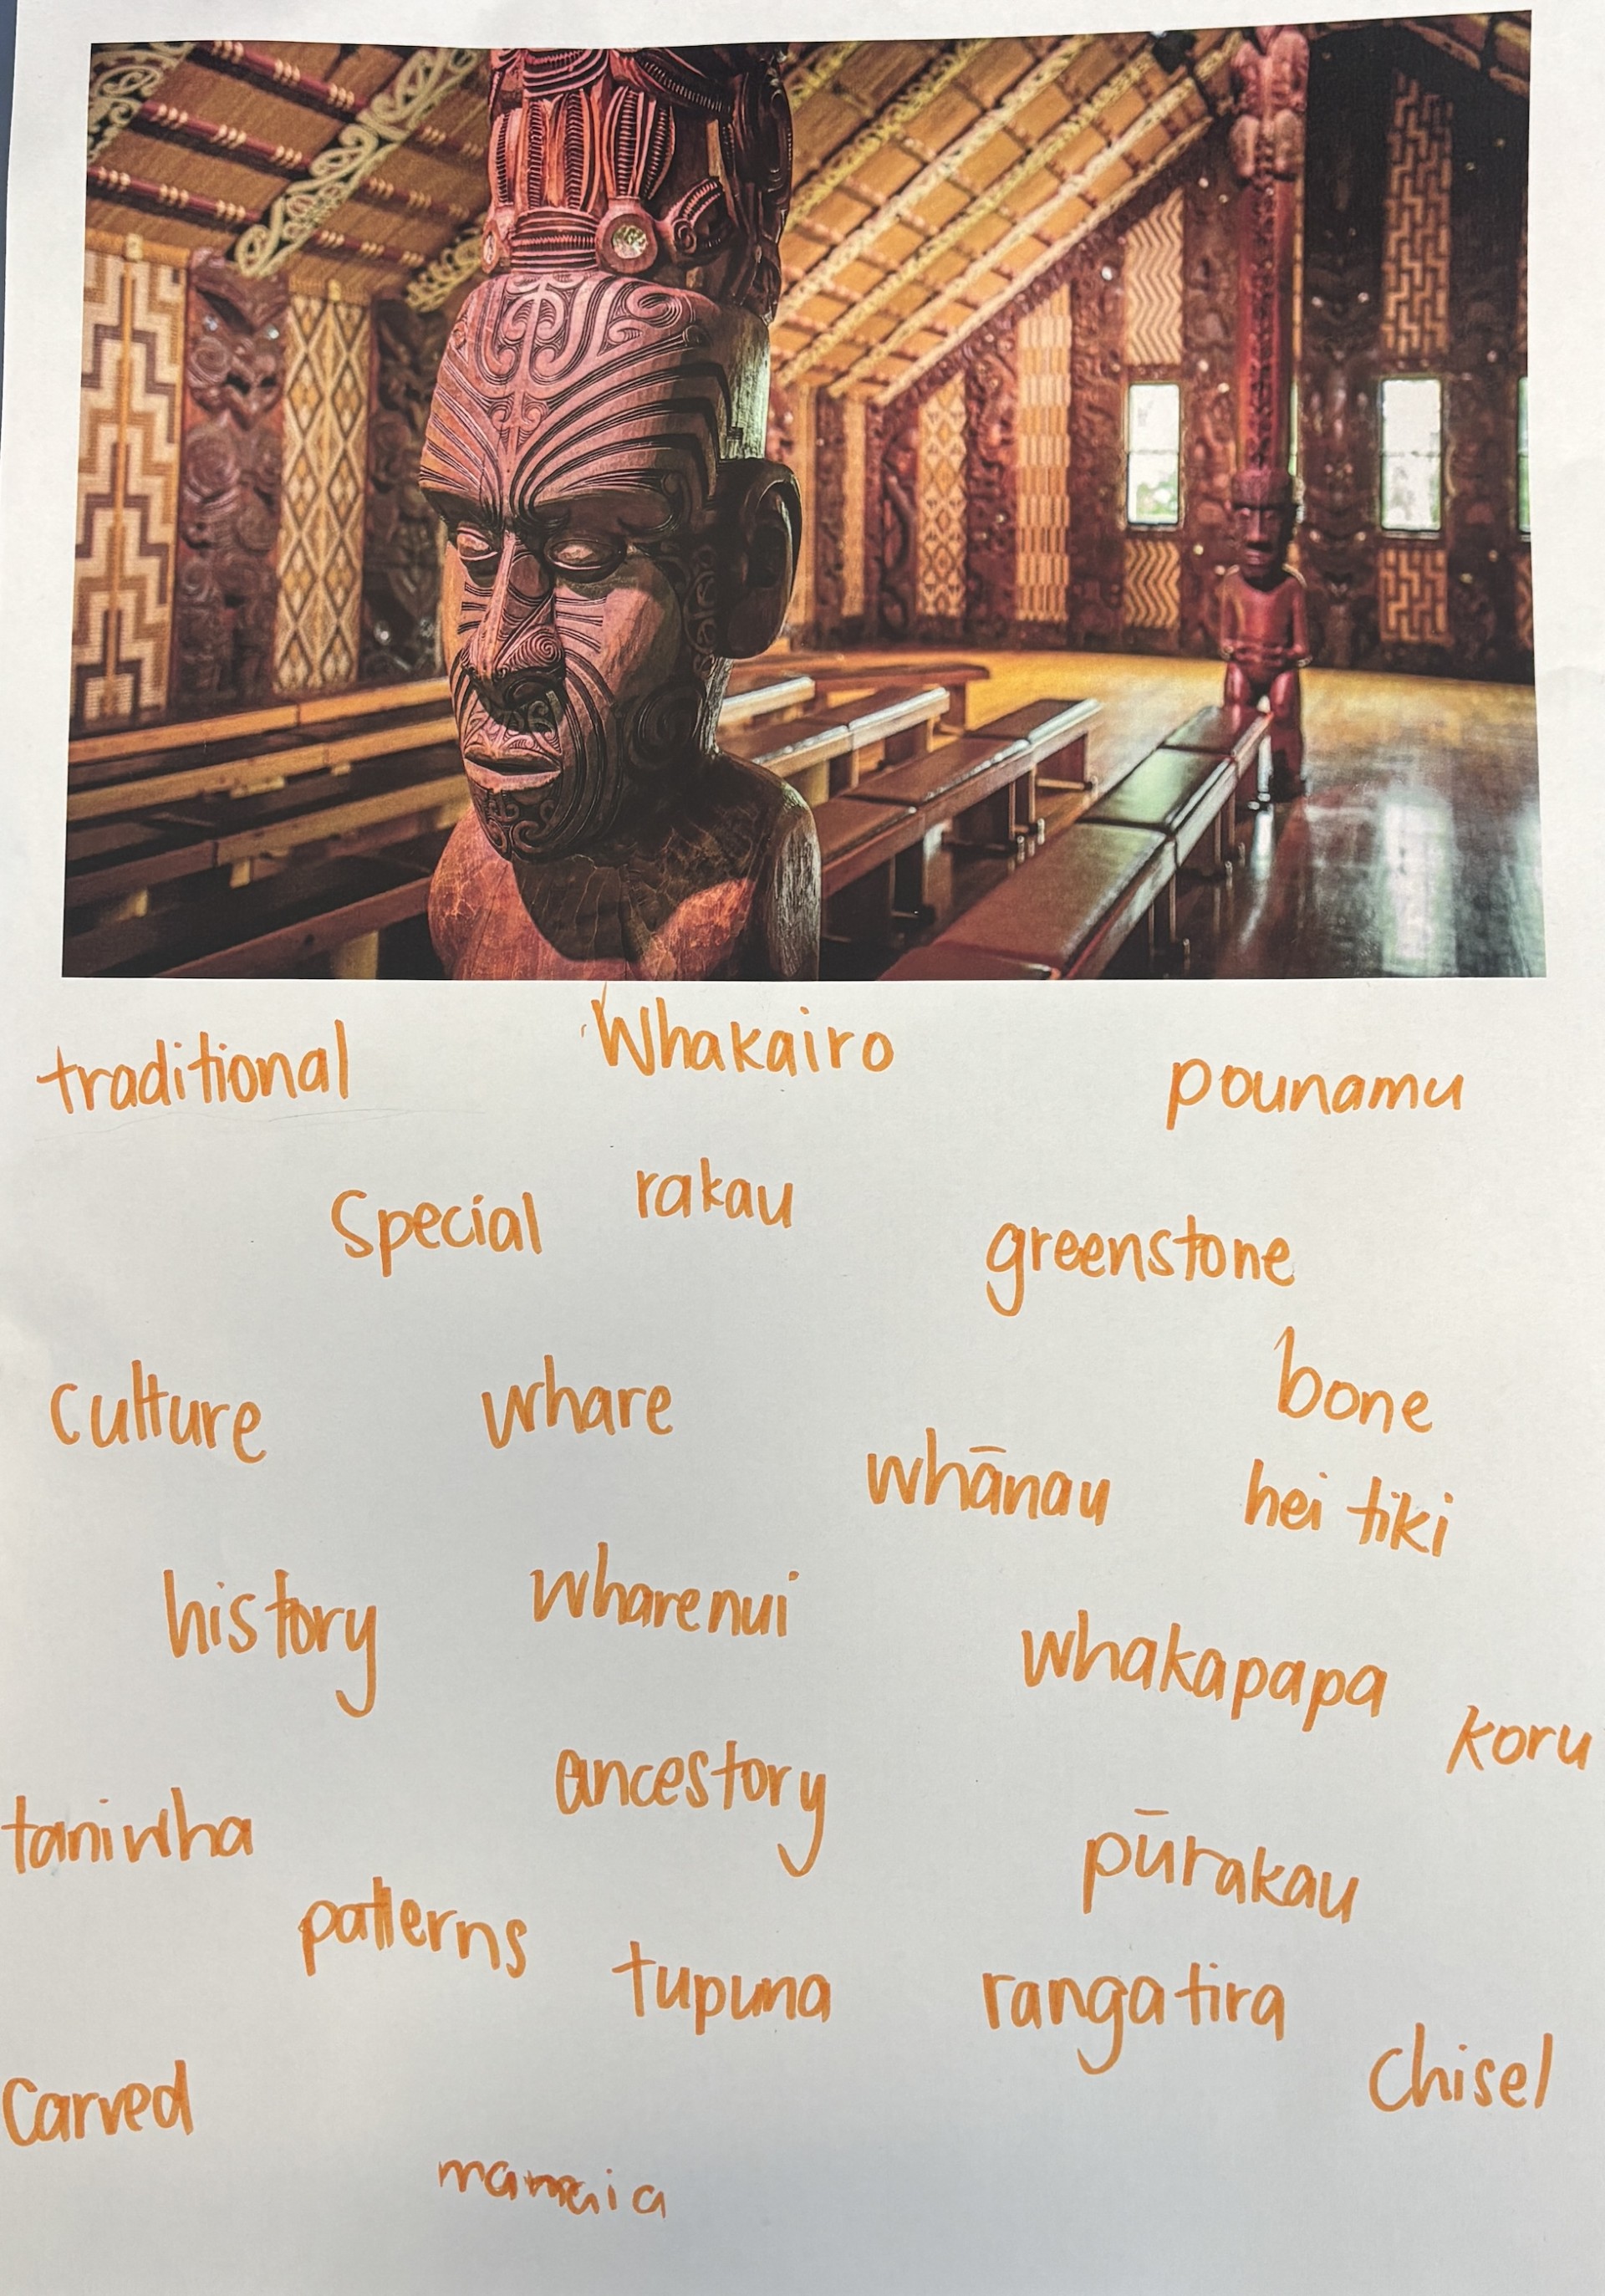 traditional
Whakairo
pounamu
Special
rakau
greenstone
culture
whare
bone
whānau
hei tiki
history
wharenui
whakapapa
koru
taniwha
ancestory
pūrakau
patterns
tupuna
rangatira
chisel
carved